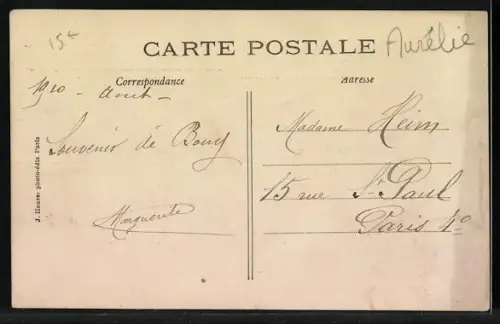 15 €
Aurélie
CARTE POSTALE
Correspondance
Adresse
1910 - Aout -
Souvenir de Bouy
Marguerite
Madame Heim
15 rue St Paul
Paris 4e
J. Heuse photo-édit. Paris